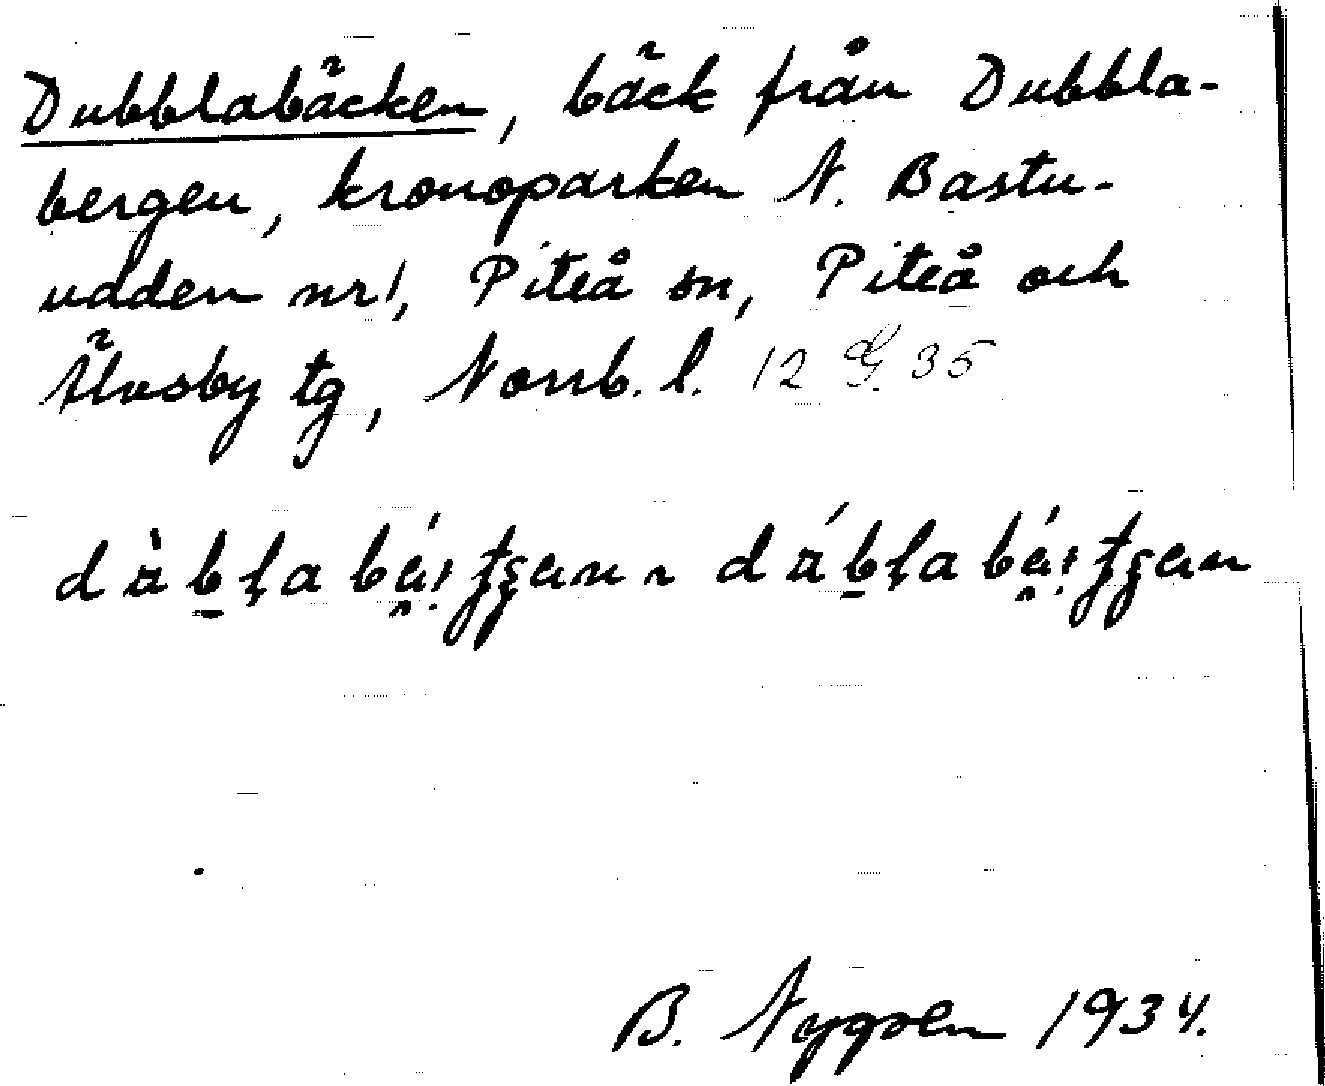 Dubblabäcken, bäck från Dubbla-
bergen, kronoparken N. Bastu-
udden nr 1, Piteå sn, Piteå och
Älvsby tg, Norrb. l. 12 G. 35
B. Nygren 1934.